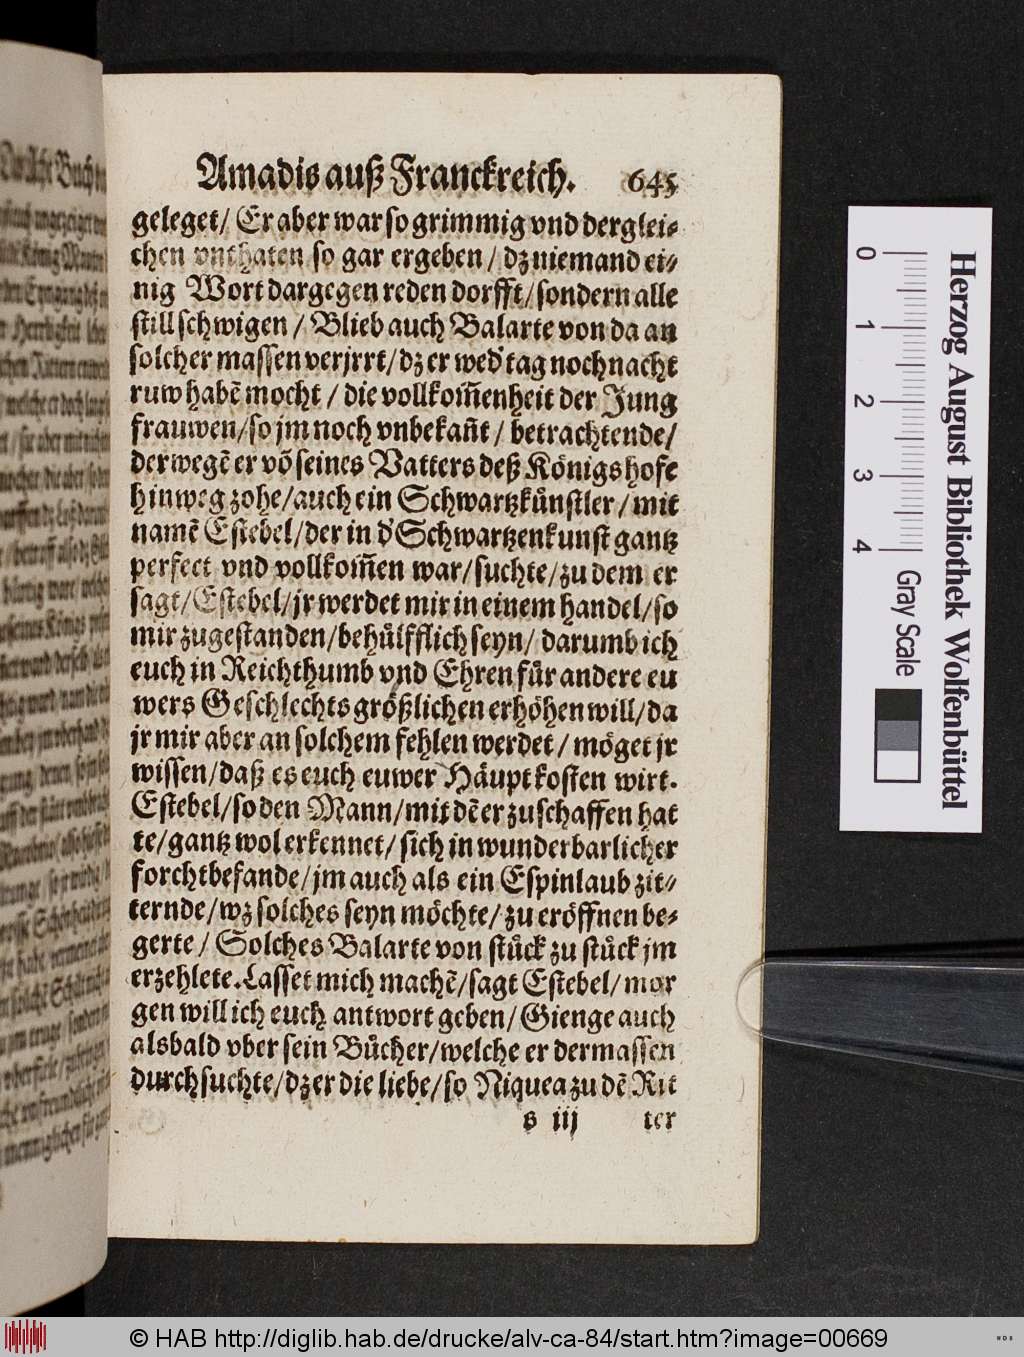 Amadis auß Franckreich. 645
geleget/ Er aber war so grimmig vnd derglei⸗
chen vnthaten so gar ergeben / dz niemand ei⸗
nig Wort dargegen reden dorfft/ sondern alle
still schwigen / Blieb auch Balarte von da an
solcher massen verjrrt/ dz er wed' tag noch nacht
ruw habẽ mocht / die vollkom̃enheit der Jung
frauwen/ so jm noch vnbekañt / betrachtende/
derwegẽ er võ seines Vatters deß Königs hofe
hinweg zohe/ auch ein Schwartzkůnstler / mit
namẽ Estebel/ der in d' Schwartzenkunst gantz
perfect vnd vollkom̃en war/ suchte/ zu dem er
sagt/ Estebel/ jr werdet mir in einem handel/ so
mir zugestanden/ behůlfflich seyn/ darumb ich
euch in Reichthumb vnd Ehren fůr andere eu
wers Geschlechts größlichen erhöhen will/ da
jr mir aber an solchem fehlen werdet / möget jr
wissen/ daß es euch euwer Häupt kosten wirt.
Estebel/ so den Mann/ mit dẽ er zuschaffen hat
te/ gantz wol erkennet/ sich in wunderbarlicher
forcht befande/ jm auch als ein Espinlaub zit⸗
ternde/ wz solches seyn möchte/ zu eröffnen be⸗
gerte / Solches Balarte von stůck zu stůck jm
erzehlete. Lasset mich machẽ/ sagt Estebel/ mor
gen will ich euch antwort geben/ Gienge auch
alsbald vber sein Bůcher/ welche er dermassen
durchsuchte/ dz er die liebe/ so Niquea zu dẽ Rit
s iij ter
Herzog August Bibliothek Wolfenbüttel
0 1 2 3 4 Gray Scale
© HAB http://diglib.hab.de/drucke/alv-ca-84/start.htm?image=00669